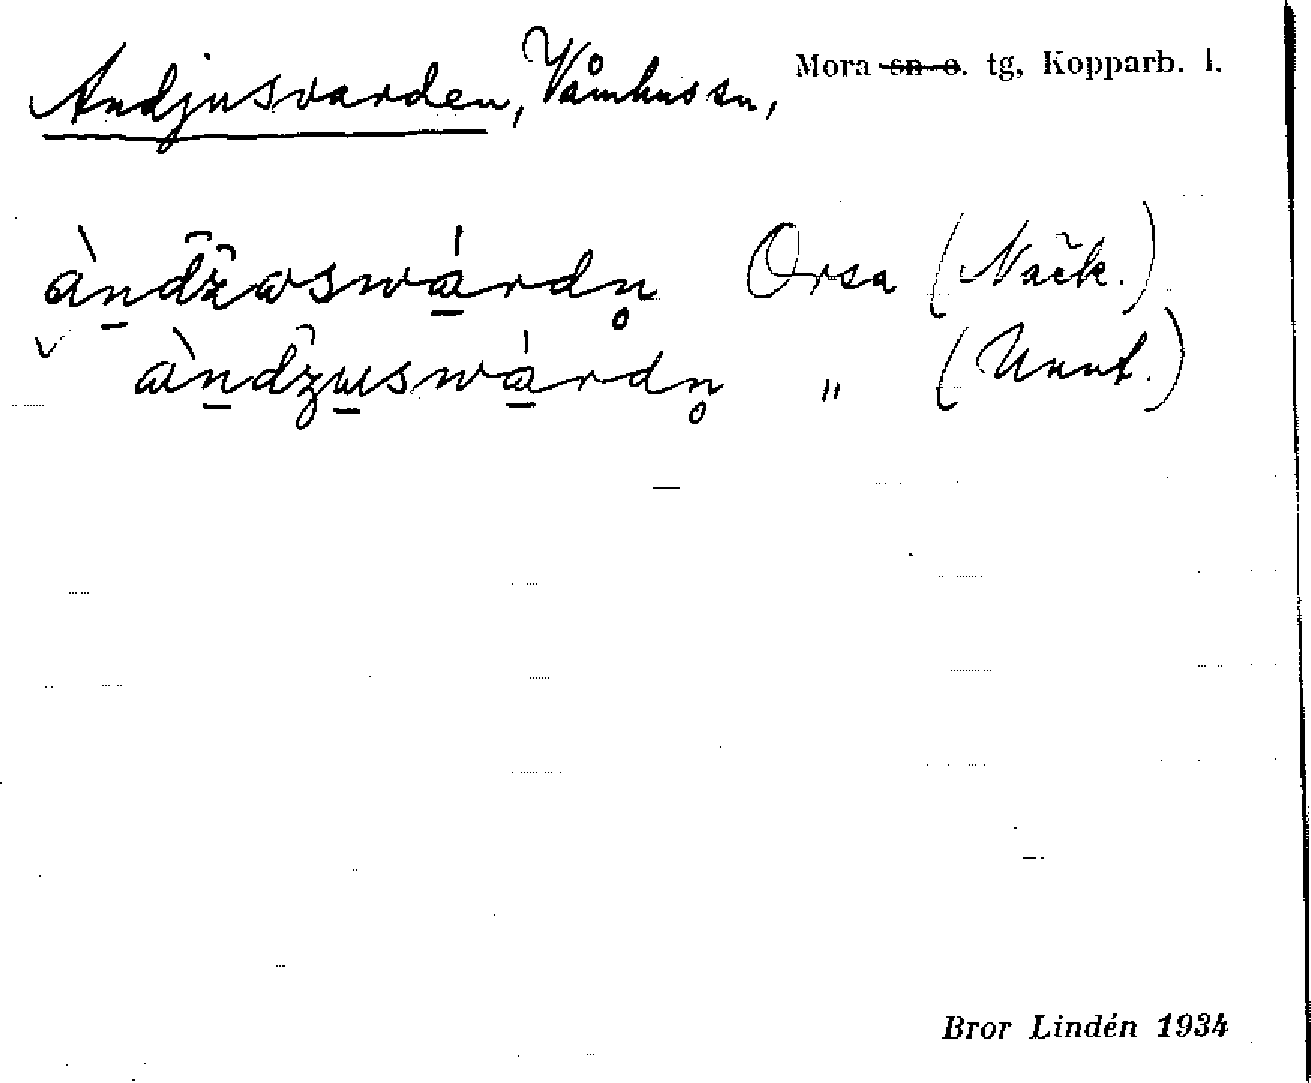 Andjusvarden, Våmhus sn, Mora sn o. tg, Kopparb. l.
àndžωswárdn̥ Orsa (Näck.)
àndzuswárdn̥ „ (Unnt.)
Bror Lindén 1934